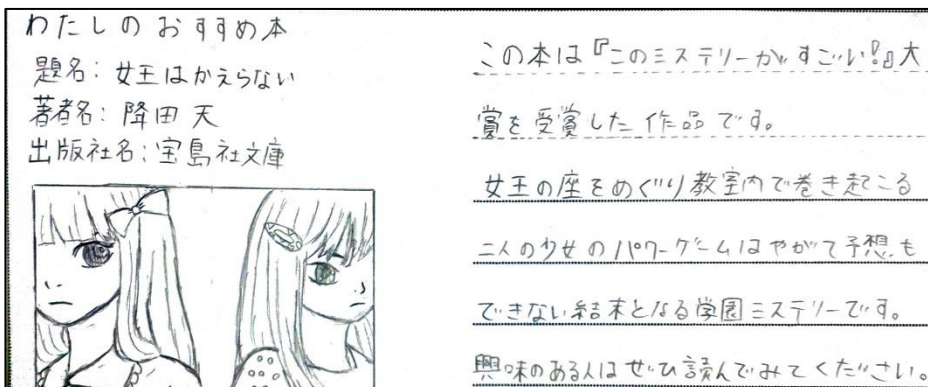 わたしのおすすめ本
題名：女王はかえらない
著者名：降田天
出版社名：宝島社文庫
この本は『このミステリーがすごい!』大
賞を受賞した作品です。
女王の座をめぐり教室内で巻き起こる
二人の少女のパワーゲームはやがて予想も
できない結末となる学園ミステリーです。
興味のある人はぜひ読んでみてください。